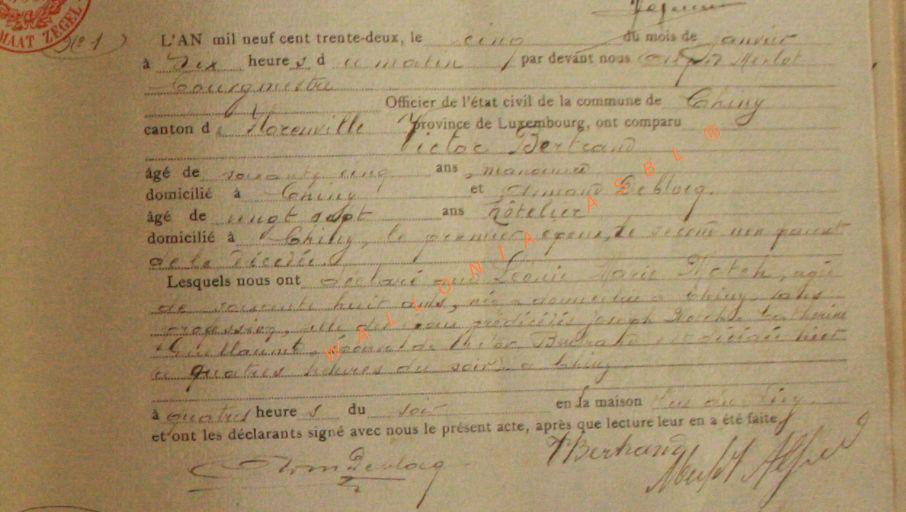 MAAT ZEGEL
N° 1
L'AN mil neuf cent trente-deux, le cinq du mois de janvier
à Dix heure s d u matin par devant nous Merlot
bourgmestre
Officier de l'état civil de la commune de Chiny
canton d e Florenville province de Luxembourg, ont comparu
Victor Bertrand
âgé de soixante cinq ans, manoeuvre
domicilié à Chiny et Armand Deblocq
âgé de vingt sept ans hôtelier
domicilié à Chiny, le premier époux, le second non parent
de la décédée.
Lesquels nous ont déclaré que Léonie Marie, agée
de soixante huit ans, née & domiciliée à Chiny sans
profession, fille des époux prédécédés Joseph & Catherine
Guillaume, épouse de Victor Bertrand est décédée hier
à quatres heures du soir, à Chiny
à quatres heure s du soir en sa maison
et ont les déclarants signé avec nous le présent acte, après que lecture leur en a été faite
VBertrand
WALLONIA ASBL ®